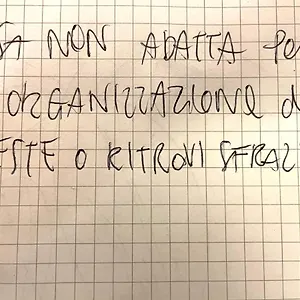 SA NON ADATTA PER
ORGANIZZAZIONE d
ESTE O RITROVI SFRAZ